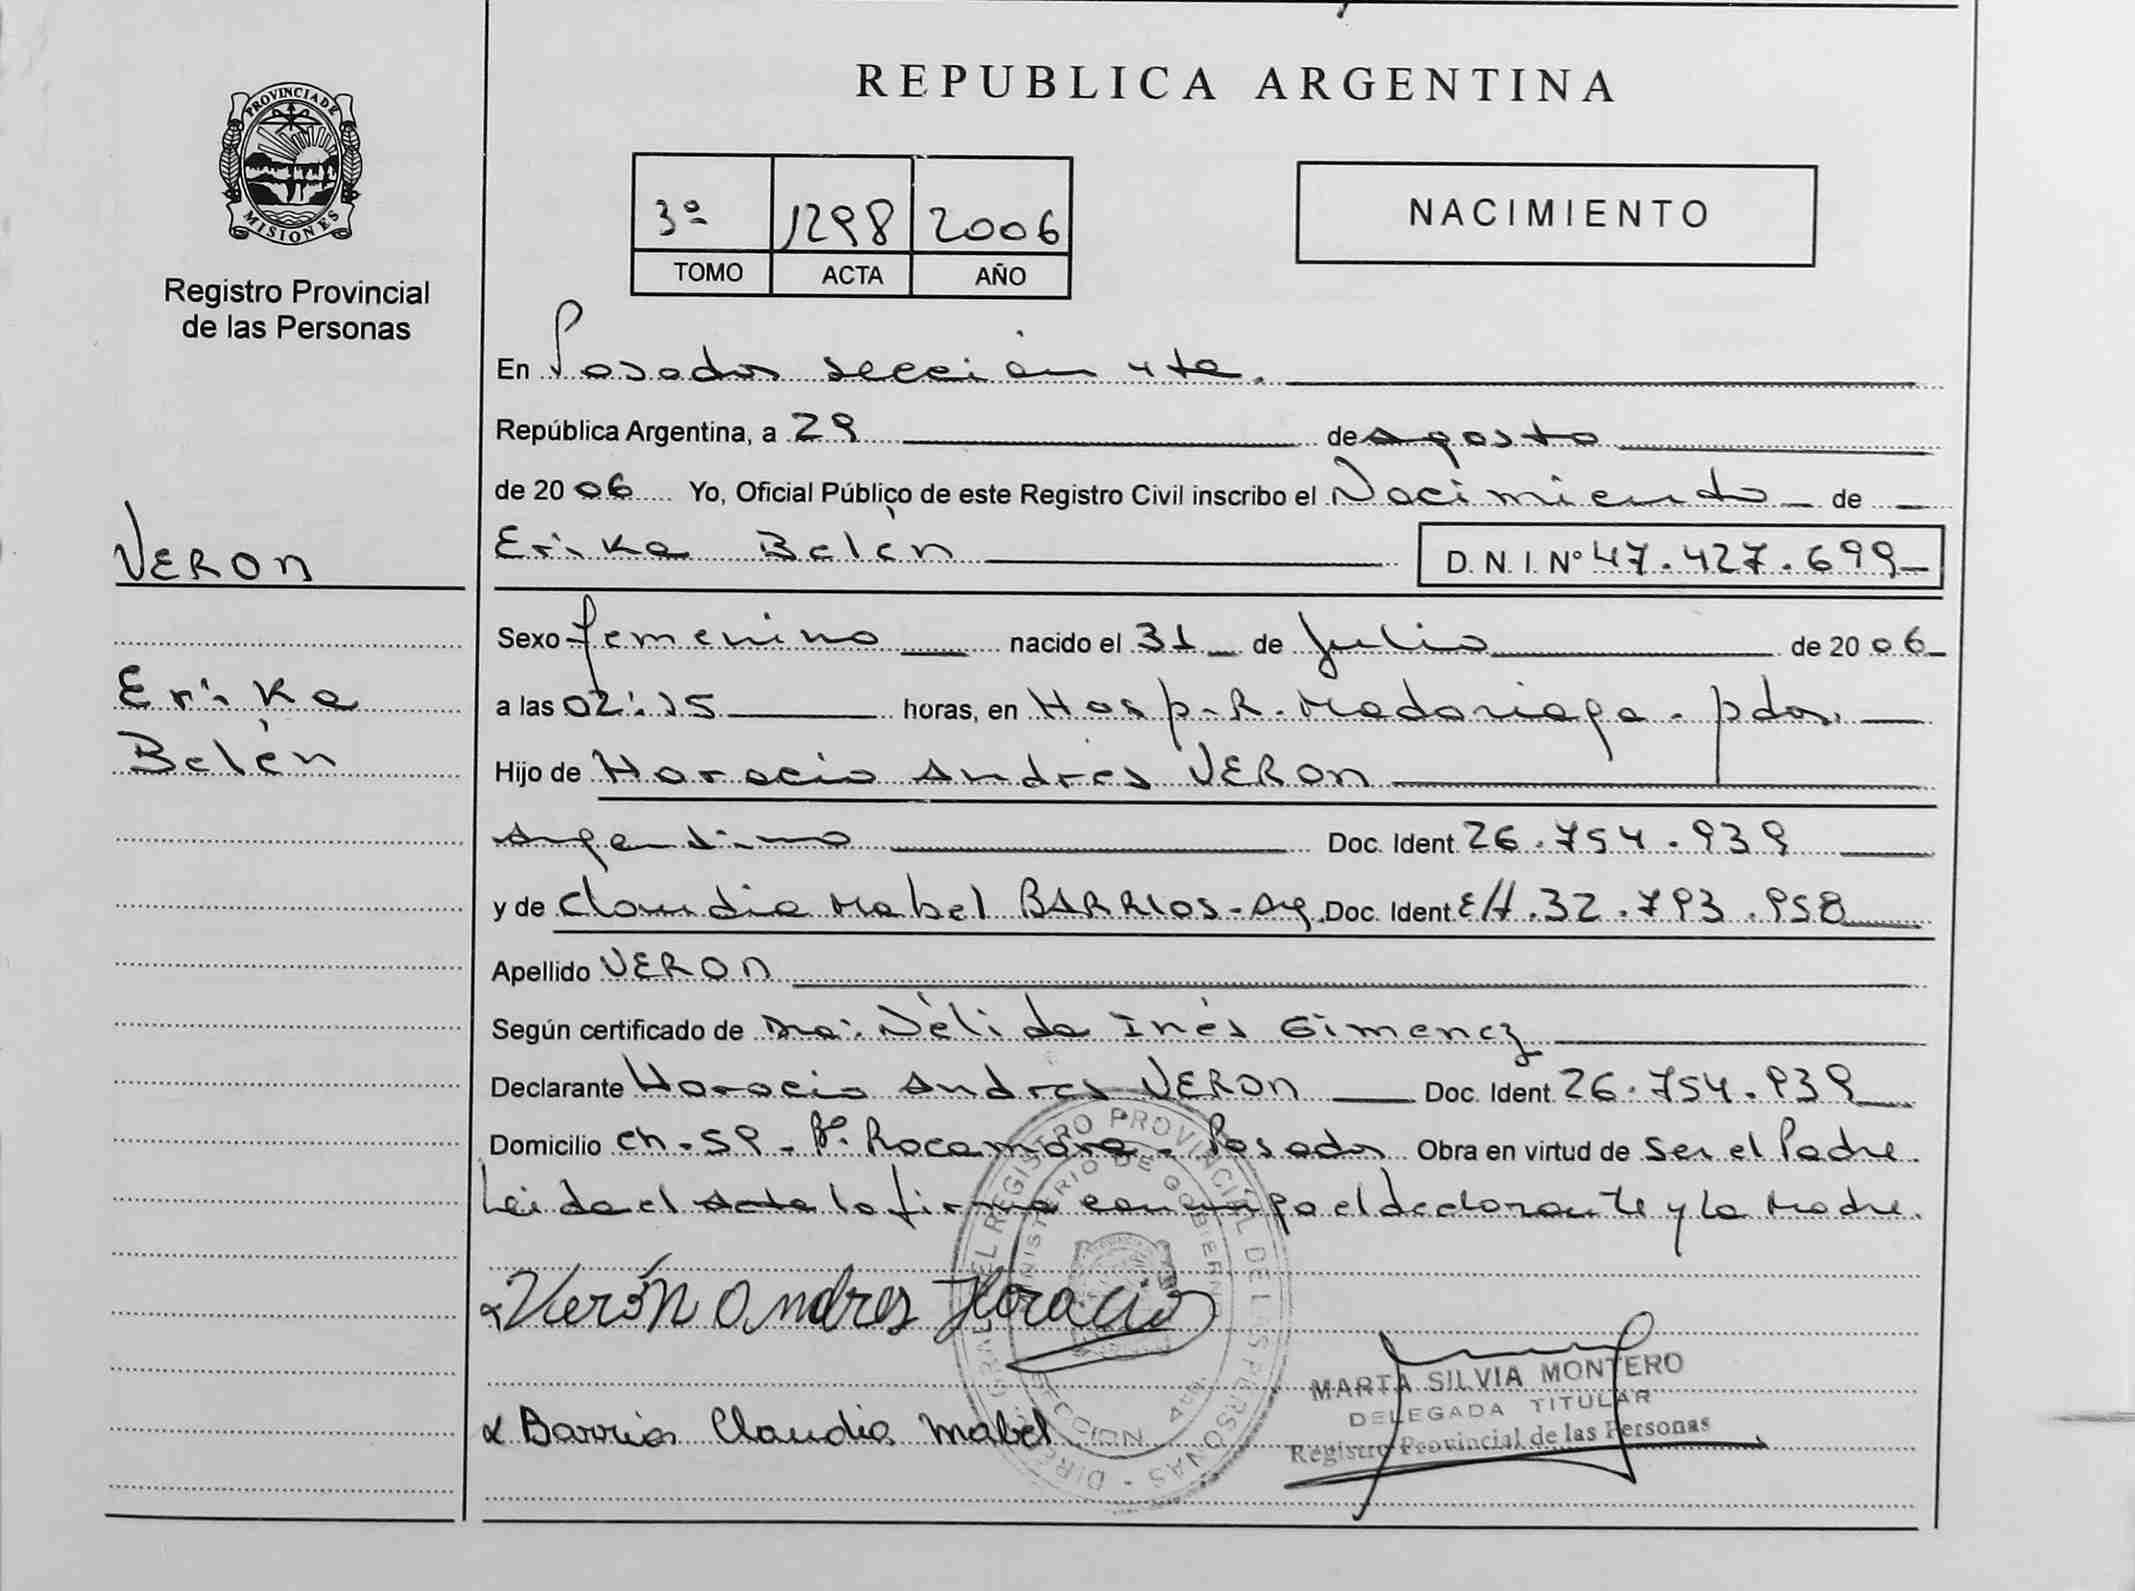 REPUBLICA ARGENTINA
PROVINCIA DE
MISIONES
Registro Provincial
de las Personas
3º 1298 2006
TOMO ACTA AÑO
NACIMIENTO
En Posadas sección 4ta.
República Argentina, a 29 de agosto
de 2006 Yo, Oficial Público de este Registro Civil inscribo el Nacimiento de
VERON
Erika Belén D. N. I. Nº 47.427.699
Sexo femenino nacido el 31 de Julio de 2006
Erika
a las 02:15 horas, en Hosp. R. Madariaga. pdas.
Belén
Hijo de Horacio Andrés VERON
Argentino Doc. Ident. 26.754.939
y de Claudia Mabel BARRIOS - Arg. Doc. Ident. EH.32.793.958
Apellido VERON
Según certificado de Dra: Nélida Inés Gimenez
Declarante Horacio Andres VERON Doc. Ident. 26.754.939
Domicilio Ch. 59 - Bº. Rocamora - Posadas Obra en virtud de ser el Padre.
Leida el Acta la firma conmigo el declarante y la Madre.
Verón Andres Horacio
Barrios Claudia Mabel
DIRECCION GRAL. DEL REGISTRO PROVINCIAL DE LAS PERSONAS
MINISTERIO DE GOBIERNO
SECCION 4ta.
MARTA SILVIA MONTERO
DELEGADA TITULAR
Registro Provincial de las Personas